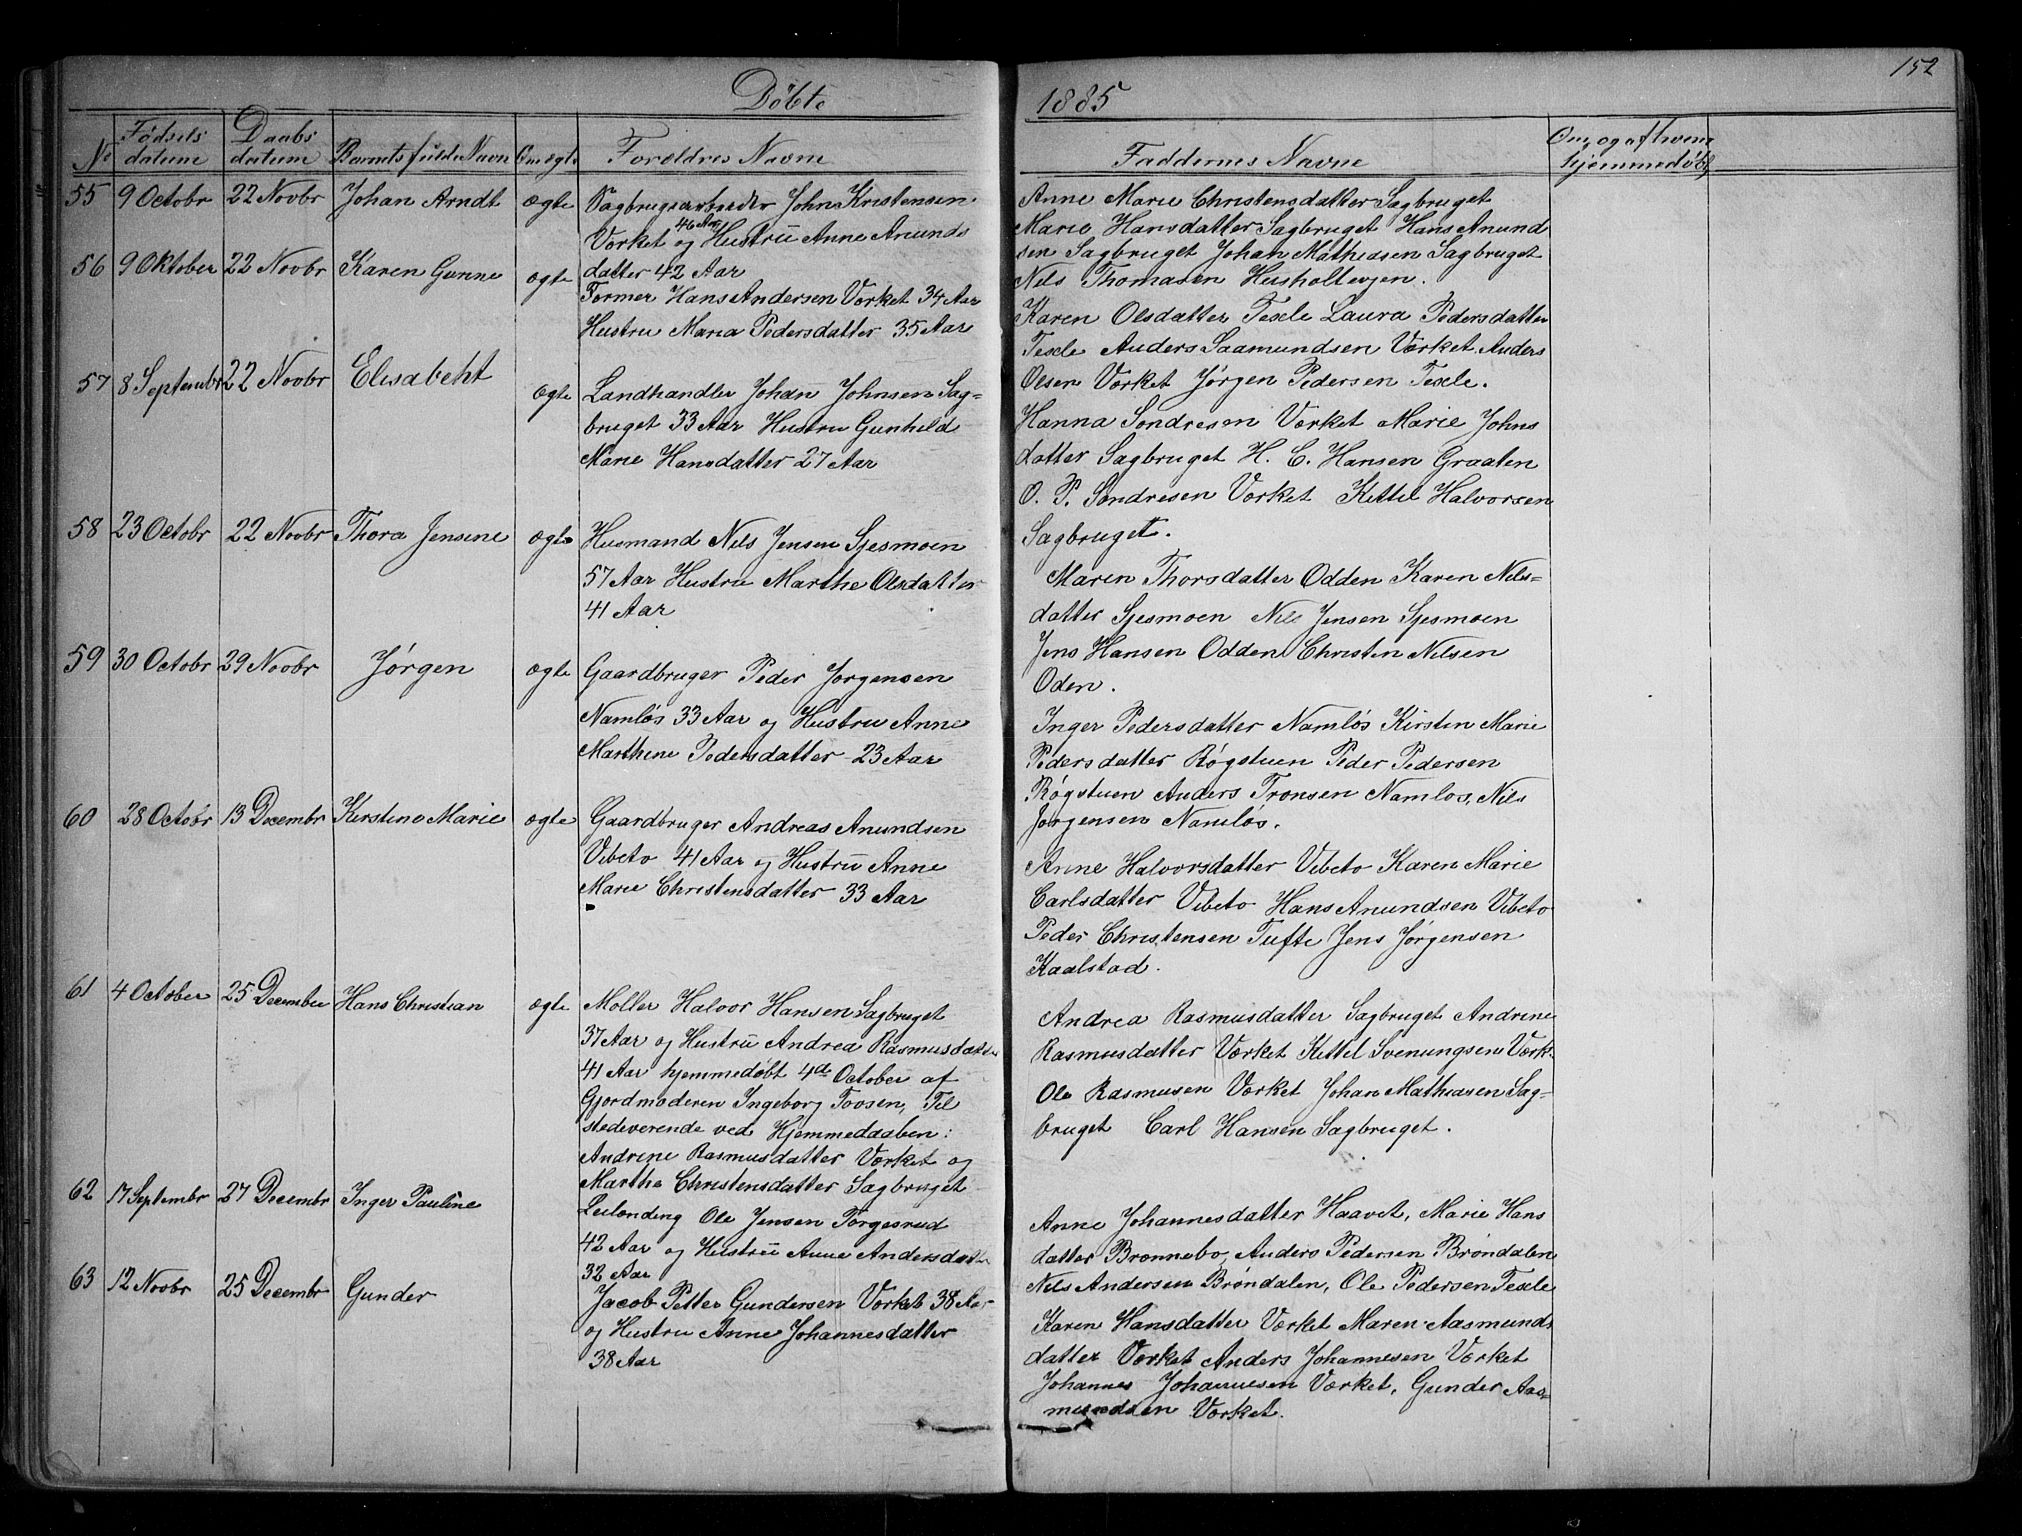 152
Döbte
1885
No
Födsels datum
Daabs datum
Barnets fulde Navn
Om ægte
Forældres Navne
Faddernes Navne
Om og af hvem hjemmedöbt
55 9 Octobr 22 Novbr Johan Arndt ægte
Sagbrugsarbeider John Kristensen
46 Aar
Værket og Hustru Anne Anunds
datter 42 Aar
Anne Marie Christensdatter Sagbruget
Marie Hansdatter Sagbruget Hans Anund
sen Sagbruget Johan Mathiasen Sagbruget
Nils Thomasen Husholtveien.
56 9 Oktober 22 Novbr Karen Gunne ægte
Former Hans Andersen Værket 34 Aar
Hustru Maria Pedersdatter 35 Aar
Karen Olsdatter Texle Laura Pedersdatter
Texle Anders Saamundsen Værket Anders
Olsen Værket Jørgen Pedersen Texle.
57 8 Septembr 22 Novbr Elisabeht ægte
Landhandler Johan Johnsen Sag-
bruget 33 Aar Hustru Gunhild
Marie Hansdatter 27 Aar
Hanna Sondresen Værket Marie Johns
datter Sagbruget H. C. Hansen Graaten
O. P. Sondresen Værket Kittil Halvorsen
Sagbruget.
58 23 Octobr 22 Novbr Thora Jensine ægte
Husmand Nils Jensen Sjesmoen
57 Aar Hustru Marthe Olsdatter
41 Aar
Maren Thorsdatter Odden Karen Nils-
datter Sjesmoen Nils Jensen Sjesmoen
Jens Hansen Odden Christen Nilsen
Oden.
59 30 Octobr 29 Novbr Jørgen ægte
Gaardbruger Peder Jorgensen
Namlös 33 Aar og Hustru Anne
Marthine Pedersdatter 23 Aar
Inger Pedersdatter Namlös Kirstin Marie
Pedersdatter Røgstuen Peder Pedersen
Røgstuen Anders Tronsen Namlos, Nils
Jørgensen Namlös.
60 28 Octobr 13 Decembr Kirstine Marie ægte
Gaardbruger Andreas Anundsen
Vibeto 41 Aar og Hustru Anne
Marie Christensdatter 33 Aar
Anne Halvorsdatter Vibeto Karen Marie
Carlsdatter Vibeto Hans Anundsen Vibeto
Peder Christensen Tufte Jens Jørgensen
Kaalstad.
61 4 October 25 December Hans Christian ægte
Moller Halvor Hansen Sagbruget
37 Aar og Hustru Andrea Rasmusdatter
41 Aar hjemmedøbt 4de October af
Gjordmoderen Ingeborg Tovsen, Til
stedeverende ved Hjemmedaaben:
Andrine Rasmusdatter Værket og
Marthe Christensdatter Sagbruget
Andrea Rasmusdatter Sagbruget Andrine
Rasmusdatter Værket Kittel Svenungsen Værk-
Ole Rasmusen Værket Johan Mathiasen Sag-
bruget Carl Hansen Sagbruget.
62 17 Septembr 27 Decembr Inger Pauline
Leilænding Ole Jensen Torgesrud
42 Aar og Hustru Anne Andersdatter
32 Aar
Anne Johannesdatter Haavet, Marie Hans
datter Brønnebo, Anders Pedersen Brøndalen
Nils Andersen Brøndalen, Ole Pedersen Texle
63 12 Novbr 25 Decembr Gunder
Jacob Petter Gundersen Værket 38 Aar
og Hustru Anne Johannesdatter
38 Aar
Karen Hansdatter Værket Maren Aasmunds
datter Værket Anders Johannesen Værket
Johannes Johannesen Værket, Gunder Aas-
mundsen Værket.